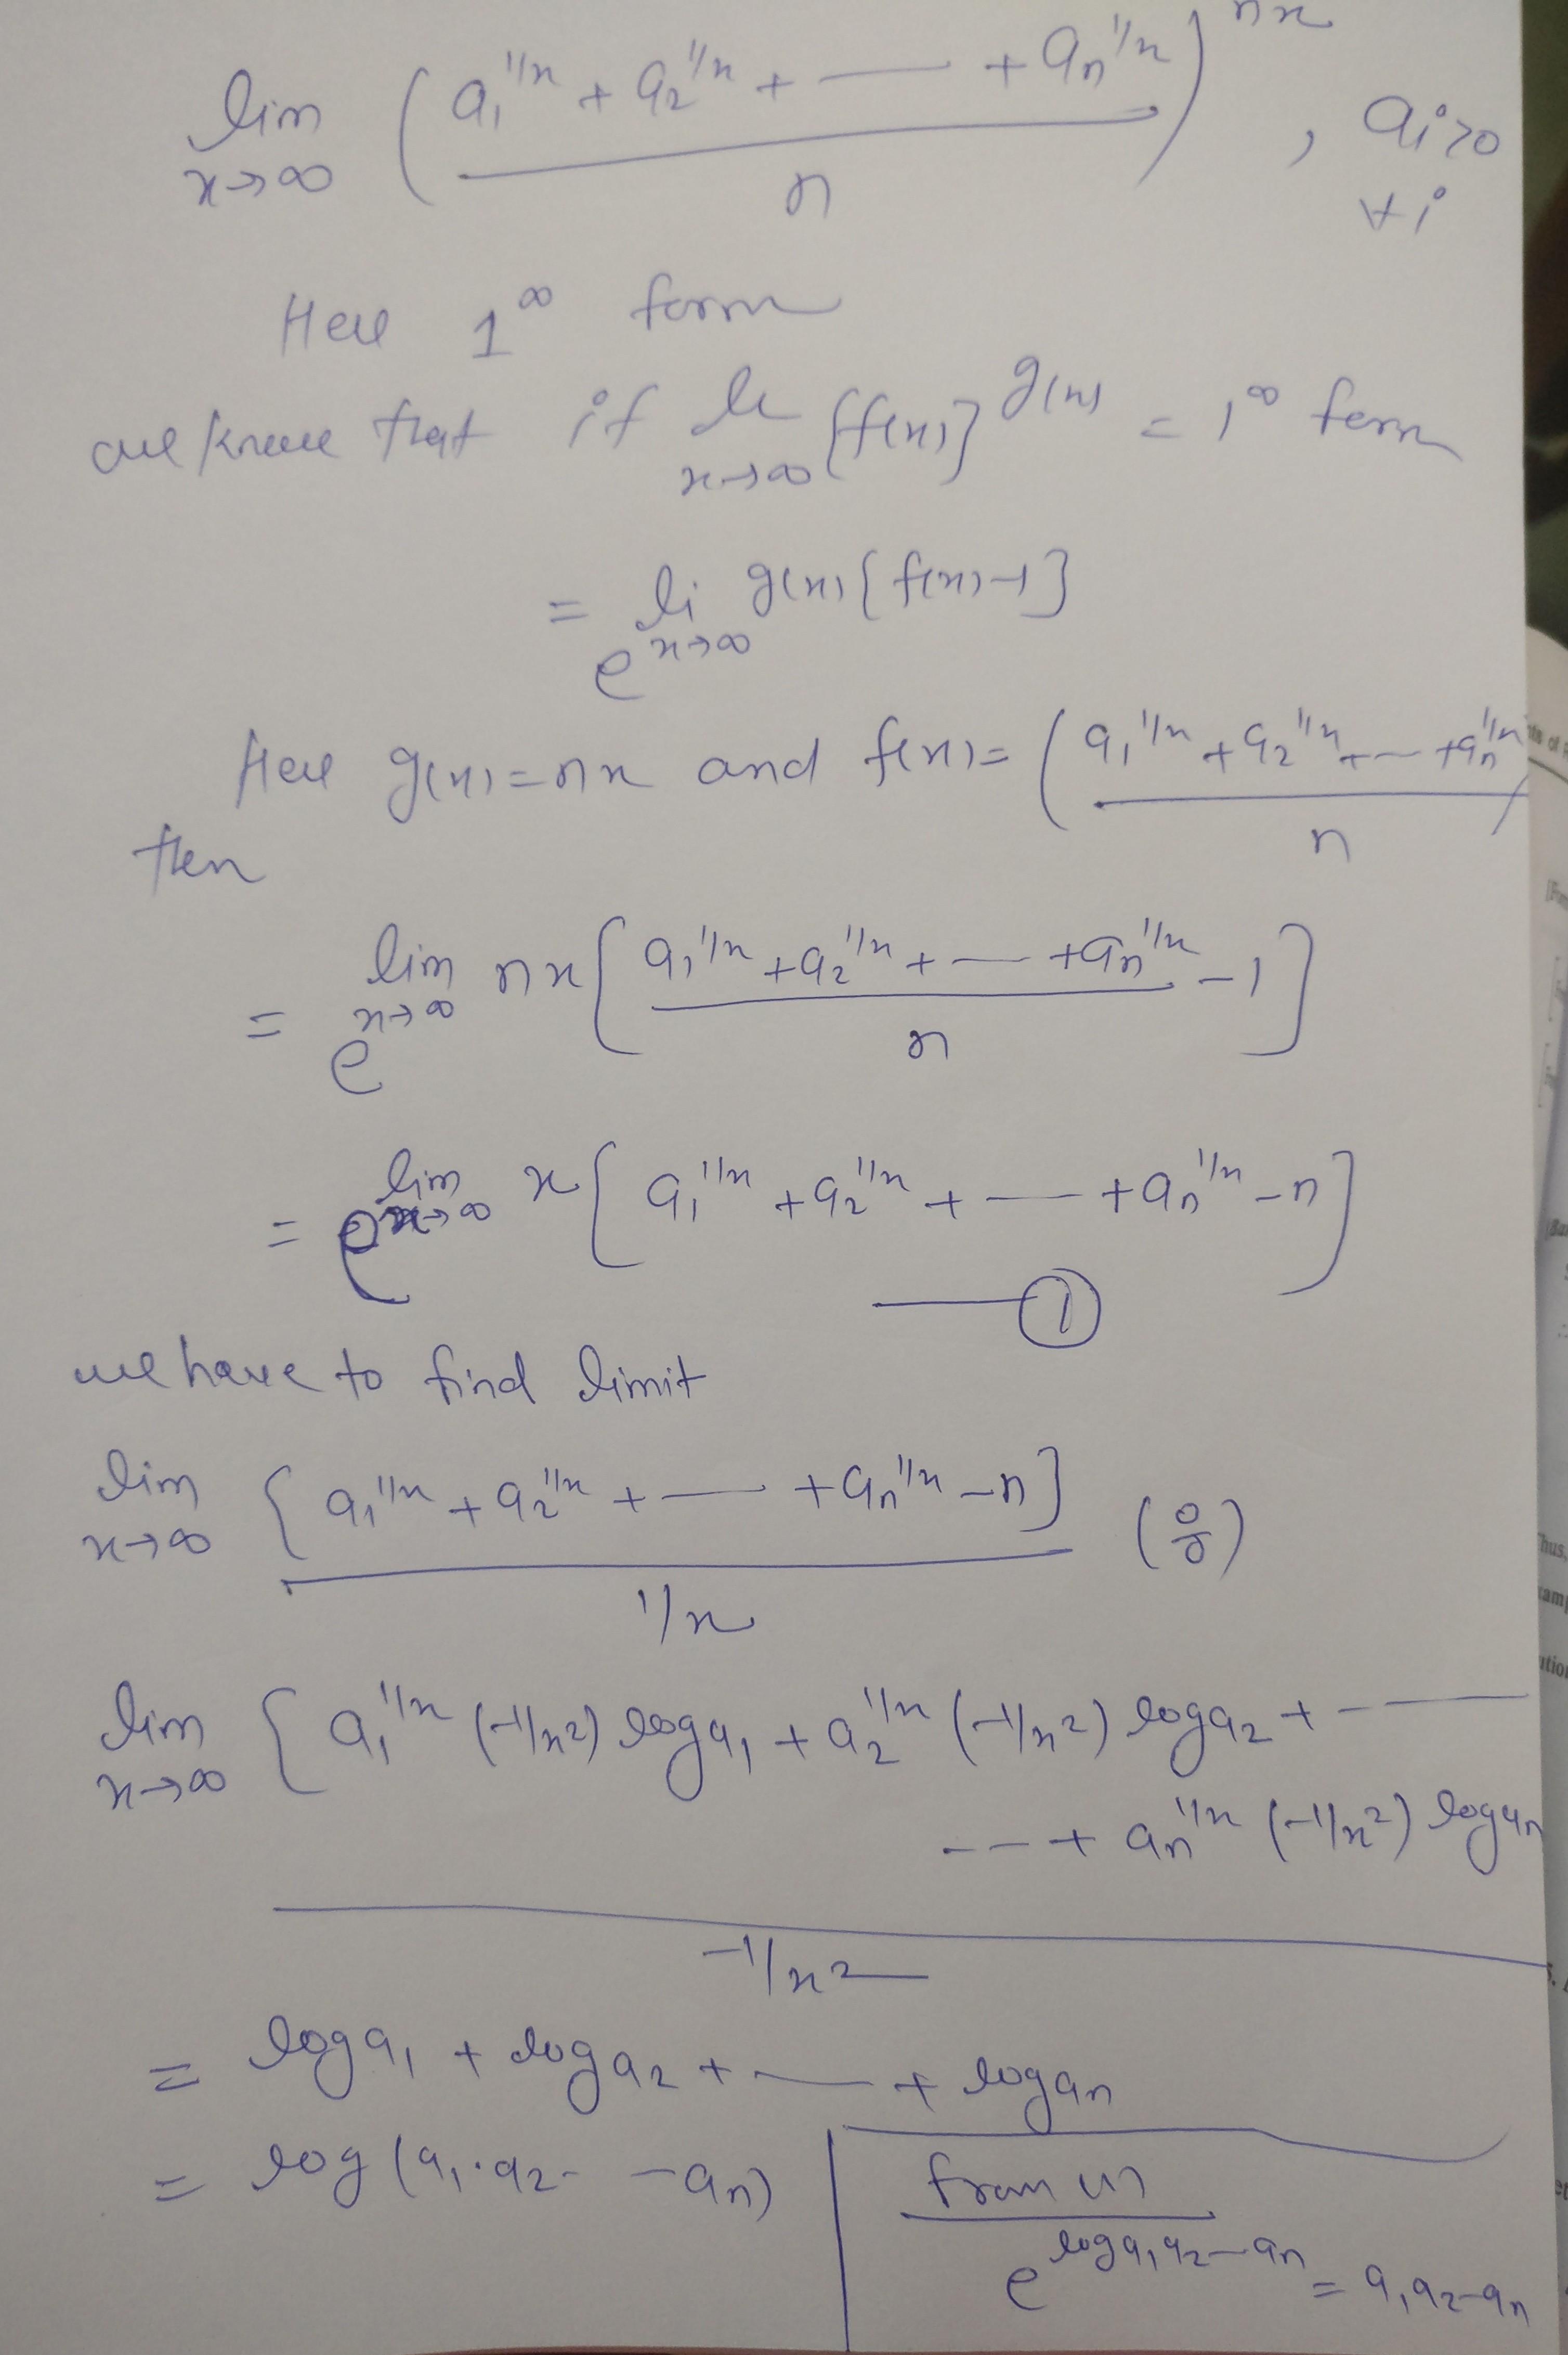 lim (a₁^{1/x} + a₂^{1/x} + — + aₙ^{1/x})^{nx} , aᵢ>0
x→∞ n ∀ i
Here 1^∞ form
we know that if li {f(x)}^{g(x)} = 1^∞ form
x→∞
= e^{li_{x→∞} g(x){f(x)-1}}
Here g(x)=nx and f(x)= (a₁^{1/x} + a₂^{1/x} + — + aₙ^{1/x})
n
then
= e^{lim_{x→∞} nx[(a₁^{1/x} + a₂^{1/x} + — + aₙ^{1/x})/n - 1]}
= e^{lim_{x→∞} x[a₁^{1/x} + a₂^{1/x} + — + aₙ^{1/x} - n]}
— ①
we have to find limit
lim {a₁^{1/x} + a₂^{1/x} + — + aₙ^{1/x} - n} (0/0)
x→∞ 1/x
lim { a₁^{1/x} (-1/x²) log a₁ + a₂^{1/x} (-1/x²) log a₂ + - —
x→∞
--- + aₙ^{1/x} (-1/x²) log aₙ
-1/x²
= log a₁ + log a₂ + — + log aₙ
= log (a₁·a₂- -aₙ)
from (1)
e^{log a₁ a₂ — aₙ} = a₁ a₂ - aₙ